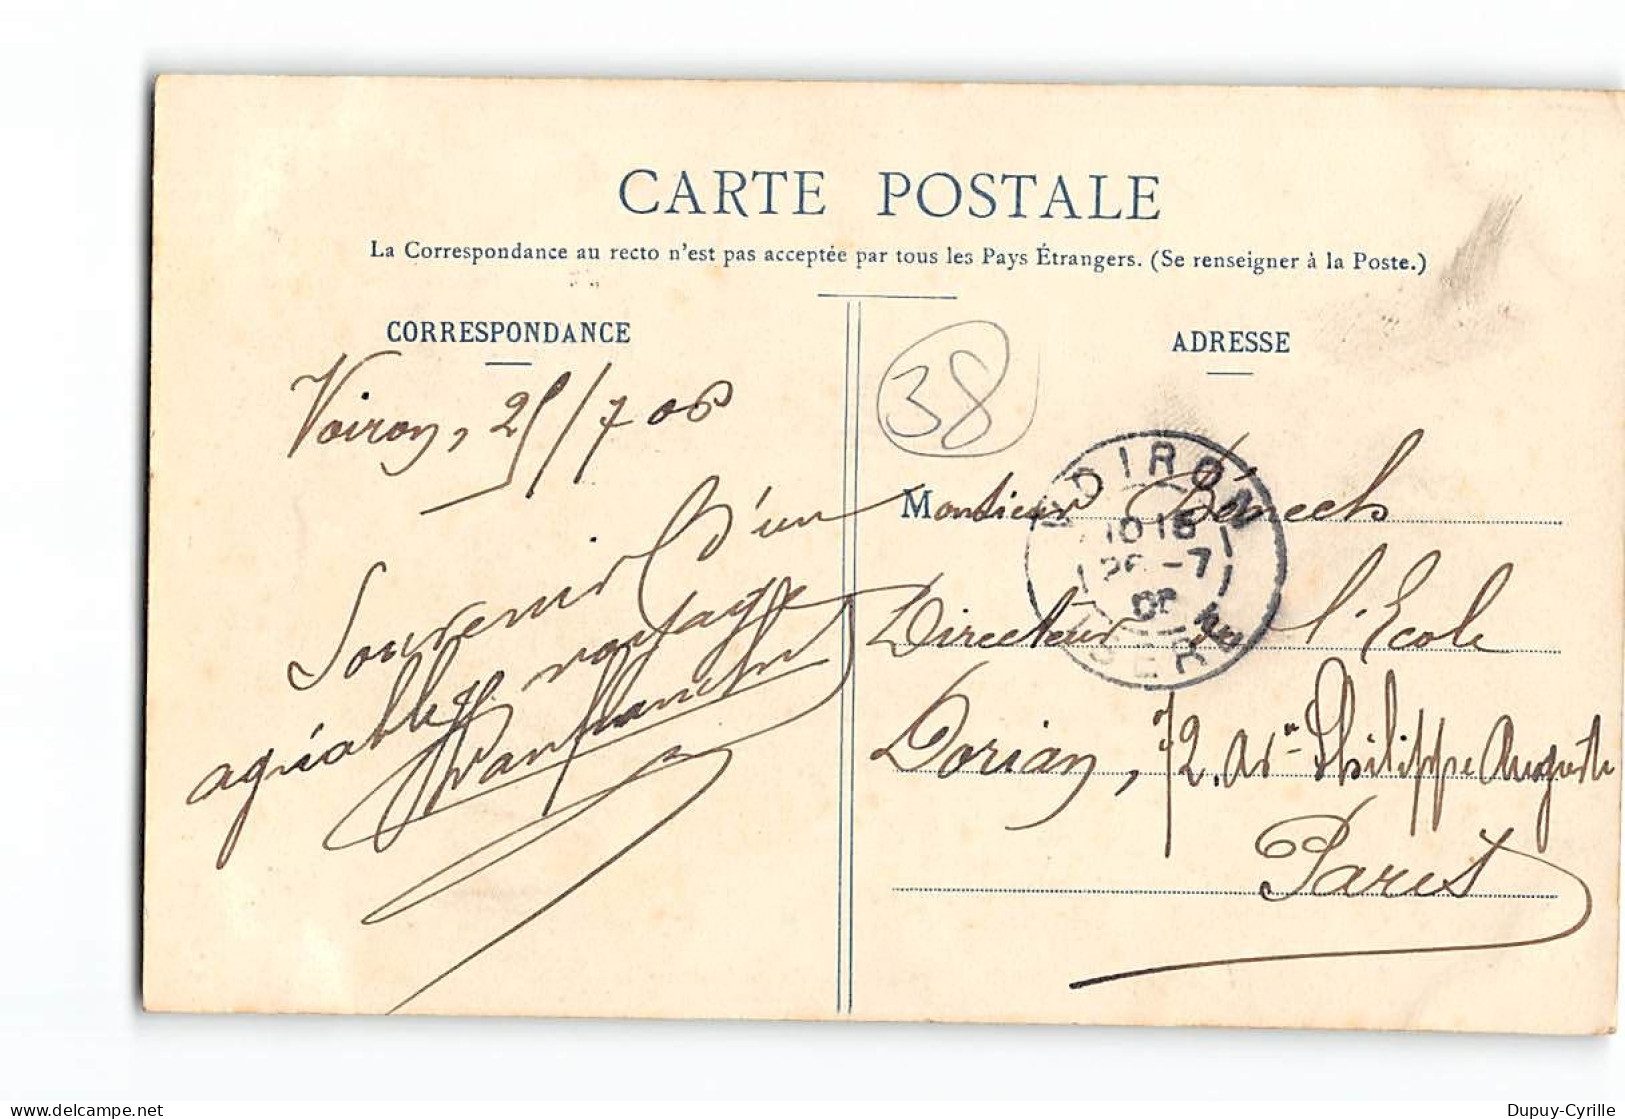 CARTE POSTALE
La Correspondance au recto n'est pas acceptée par tous les Pays Étrangers. (Se renseigner à la Poste.)
CORRESPONDANCE
Voiron, 25/7 06
Souvenir d'un
agréable voyage
ADRESSE
38
VOIRON
10 15
26 -7
06
ISERE
Monsieur Bénech
Directeur de l'Ecole
Dorian, 72. Avn Philippe Auguste
Paris
Dupuy-Cyrille